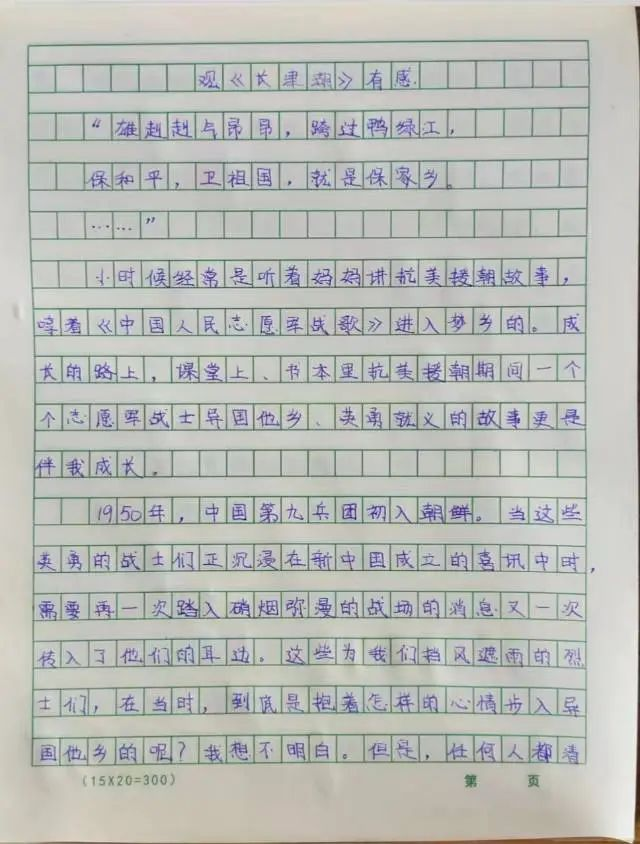 观《长津湖》有感
“雄赳赳与昂昂，跨过鸭绿江，
保和平，卫祖国，就是保家乡。
……”
小时候经常是听着妈妈讲抗美援朝故事，
哼着《中国人民志愿军战歌》进入梦乡的。成
长的路上，课堂上、书本里抗美援朝期间一个
个志愿军战士异国他乡、英勇就义的故事更是
伴我成长。
1950年，中国第九兵团初入朝鲜。当这些
英勇的战士们正沉浸在新中国成立的喜讯中时，
需要再一次踏入硝烟弥漫的战场的消息又一次
传入了他们的耳边。这些为我们挡风遮雨的烈
士们，在当时，到底是抱着怎样的心情步入异
国他乡的呢？我想不明白。但是，任何人都清
(15X20=300)
第 页